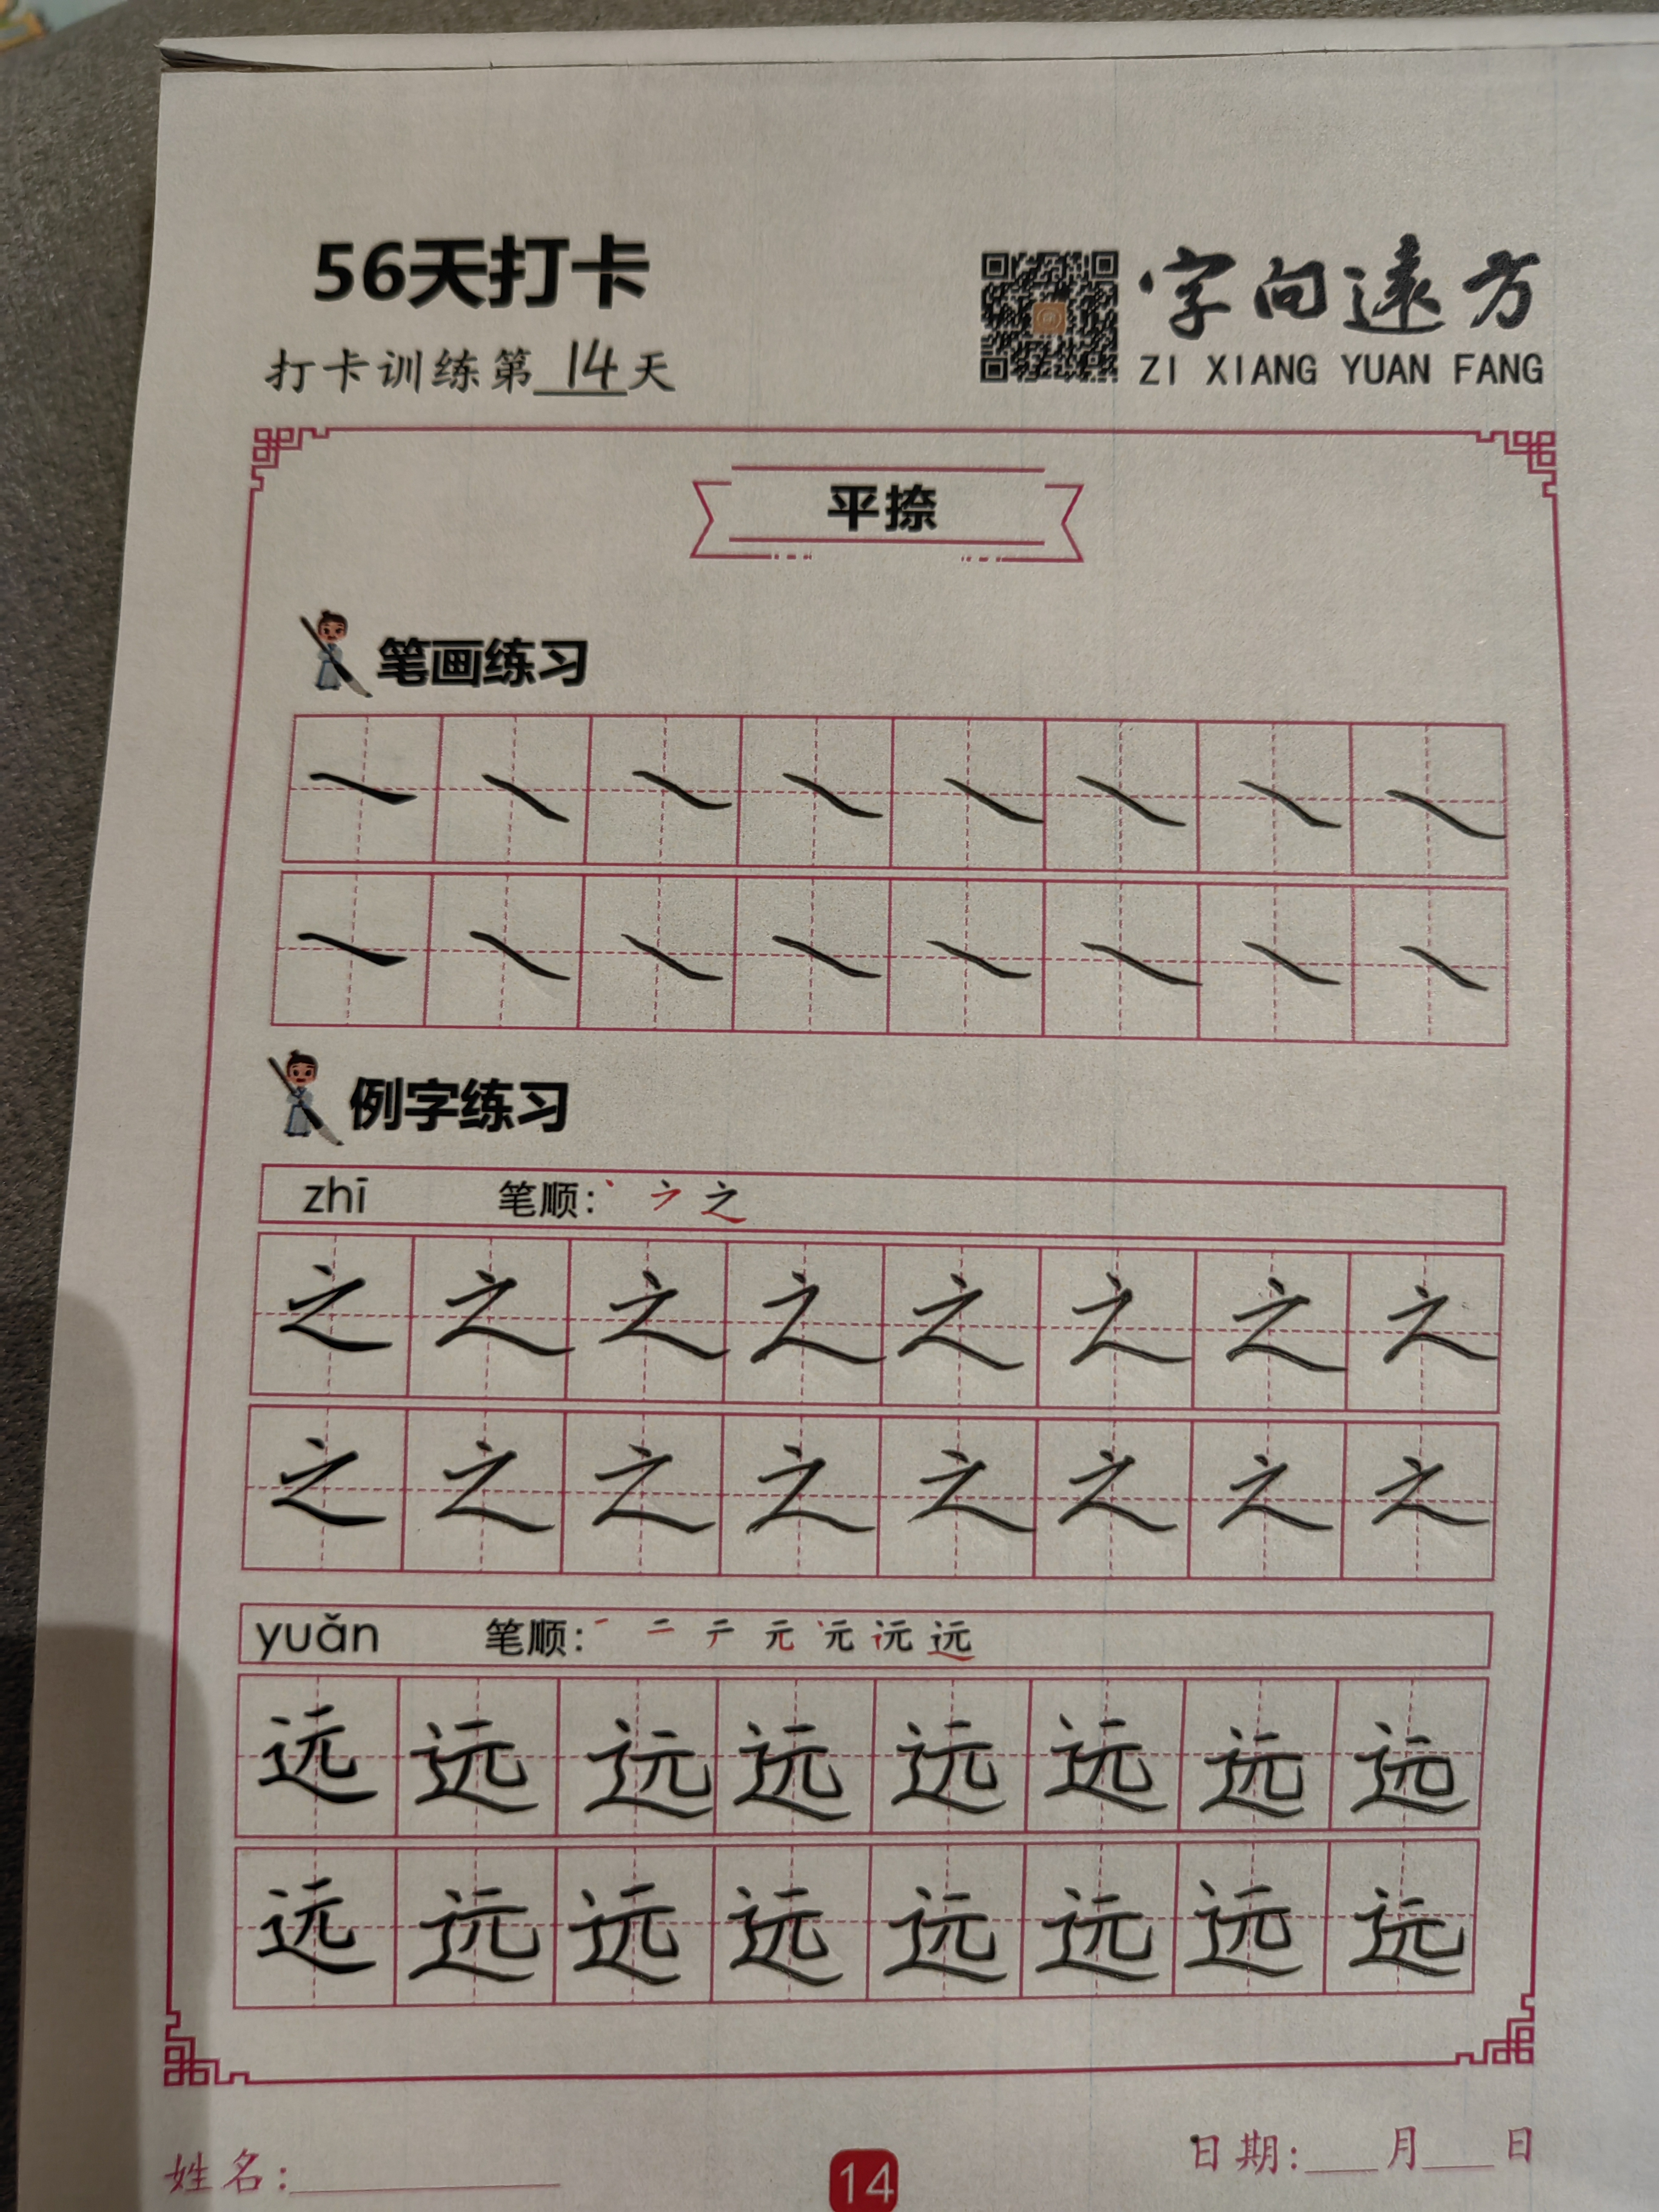 56天打卡
字向遠方
打卡训练第14天
ZI XIANG YUAN FANG
平捺
笔画练习
例字练习
zhī 笔顺：
之 之 之 之 之 之 之 之
之 之 之 之 之 之 之 之
yuǎn 笔顺：
远 远 远 远 远 远 远 远
远 远 远 远 远 远 远 远
姓名：
14
日期：___月___日